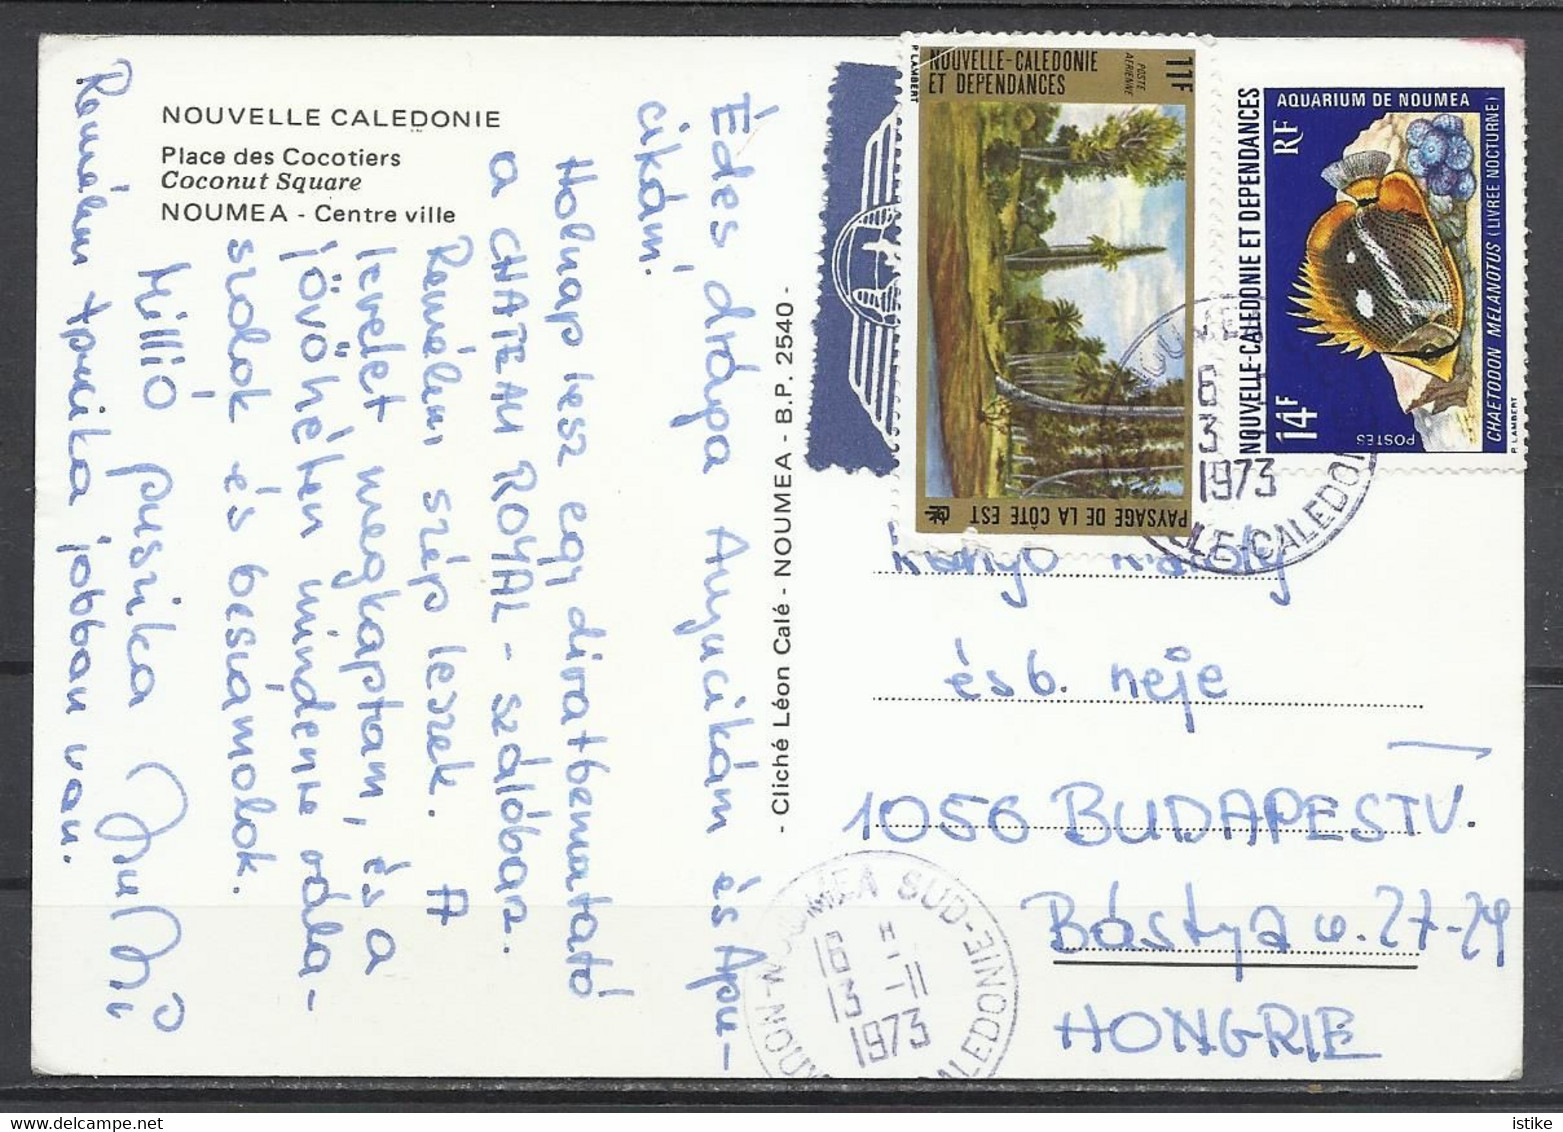 NOUVELLE CALEDONIE
Place des Cocotiers
Coconut Square
NOUMEA - Centre ville
Édes drága Anyucikám és Apu-
cikám!
Holnap lesz egy divatbemutató
a CHATEAU ROYAL - szállóban.
Remélem szép leszek. A
levelet megkaptam, és a
jövőhéten mindenre vála-
szolok és beszámolok.
Millió puszika
Remélem Apucika jobban van.
- Cliché Léon Calé - NOUMEA - B.P. 2540 -
NOUVELLE-CALEDONIE
ET DEPENDANCES
POSTE
AERIENNE
11F
P. LAMBERT
PAYSAGE DE LA CÔTE EST
RF
AQUARIUM DE NOUMEA
RF
NOUVELLE-CALEDONIE ET DEPENDANCES
14F
POSTES
CHAETODON MELANOTUS (LIVREE NOCTURNE)
P. LAMBERT
NOUMEA
16
3
1973
NOUVELLE-CALEDONIE
és b. neje
1056 BUDAPEST V.
Bástya u. 27-29
HONGRIE
NOUMEA SUD
16 H
13 -11
1973
CALEDONIE
istike